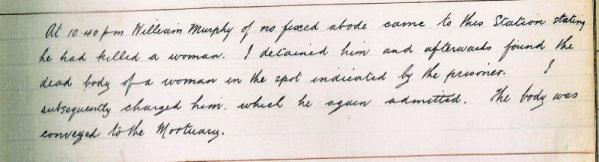 At 10.40 pm William Murphy of no fixed abode came to this Station stating
he had killed a woman. I detained him and afterwards found the
dead body of a woman in the spot indicated by the prisoner. I
subsequently charged him. which he again admitted. The body was
conveyed to the Mortuary.